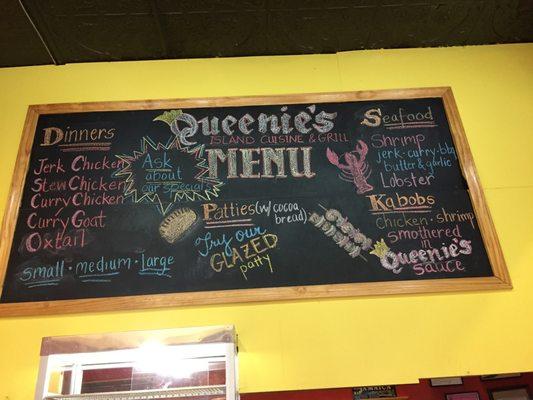 Queenie's
ISLAND CUISINE & GRILL
MENU
Dinners
Jerk Chicken
Stew Chicken
Curry Chicken
Curry Goat
Oxtail
small - medium - Large
Ask
about
our specials
Patties (w/ cocoa
bread)
Try our
GLAZED
patty
Seafood
Shrimp
jerk-curry-bbq
butter & garlic
Lobster
Kabobs
Chicken - shrimp
smothered
in
Queenie's
sauce
JAMAICA